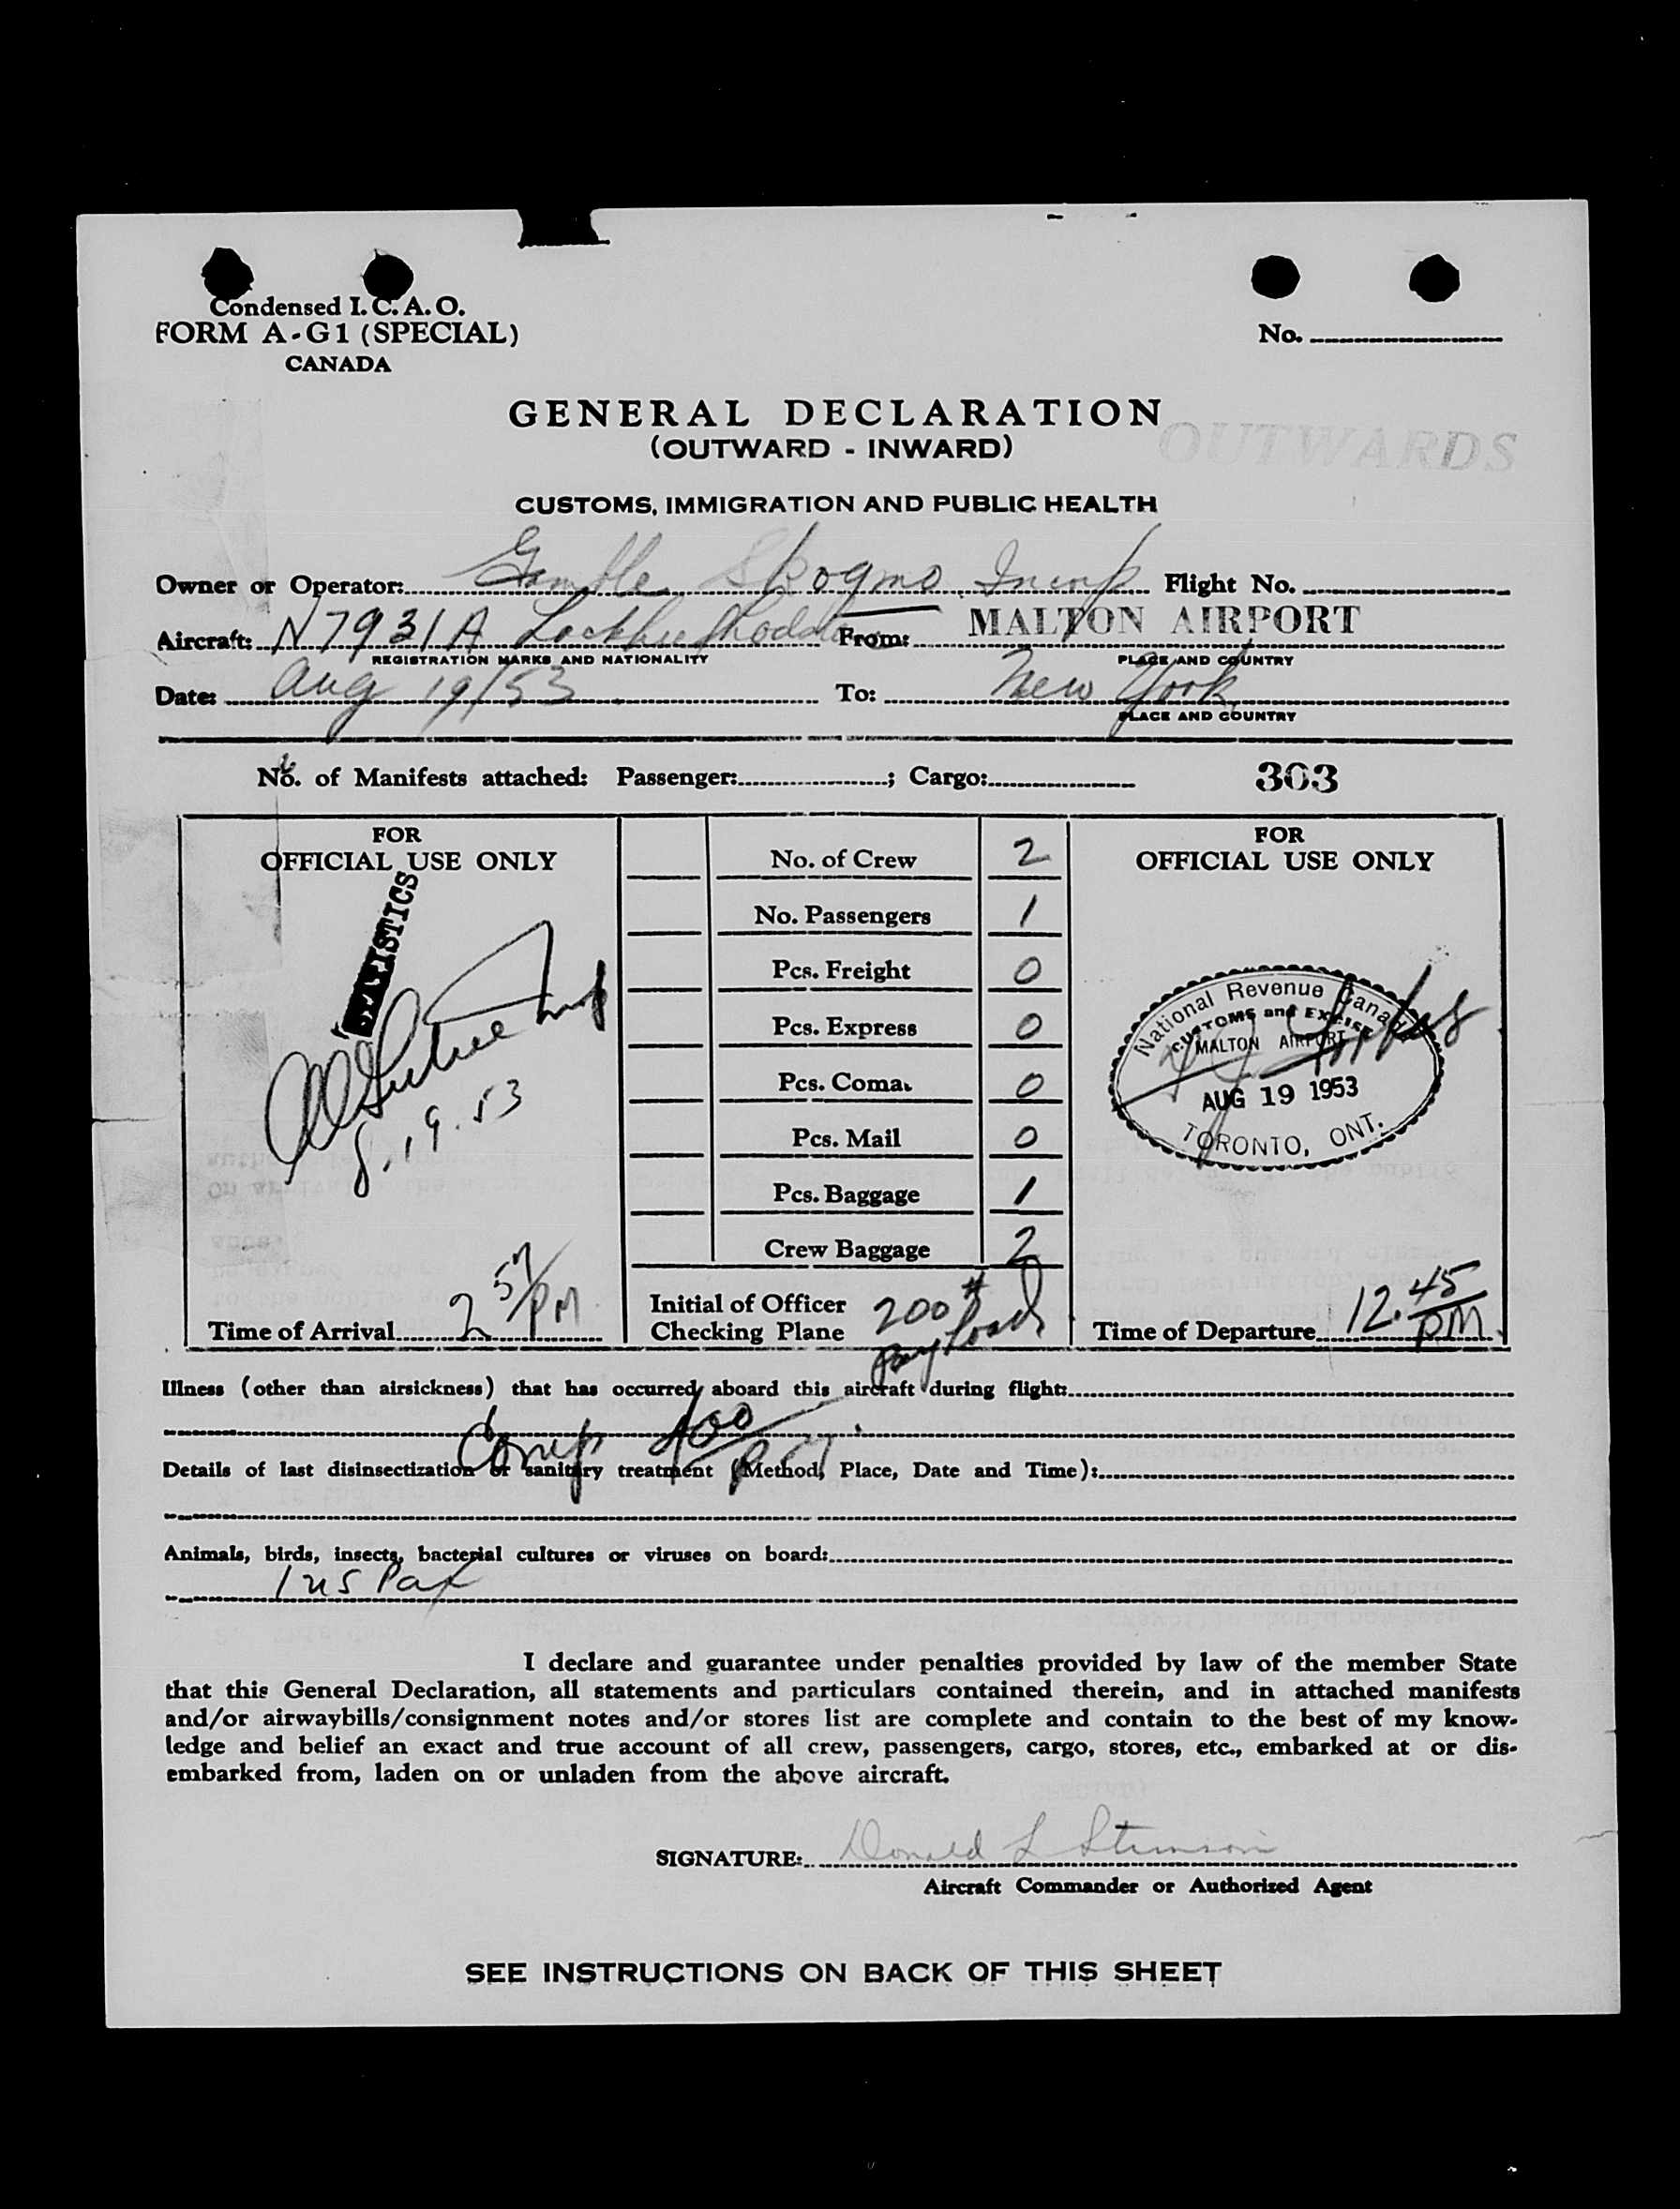 Condensed I. C. A. O.
FORM A-G1 (SPECIAL)
CANADA
No.
GENERAL DECLARATION
(OUTWARD - INWARD)
OUTWARDS
CUSTOMS, IMMIGRATION AND PUBLIC HEALTH
Owner or Operator: Gamble Skogmo Incorp Flight No.
Aircraft: N7931A From: MALTON AIRPORT
REGISTRATION MARKS AND NATIONALITY PLACE AND COUNTRY
Date: Aug 19/53 To: New York
PLACE AND COUNTRY
No. of Manifests attached: Passenger: ; Cargo: 303
FOR
OFFICIAL USE ONLY
STATISTICS
8.19.53
Time of Arrival 2 57/PM
No. of Crew 2
No. Passengers 1
Pcs. Freight 0
Pcs. Express 0
Pcs. Comat 0
Pcs. Mail 0
Pcs. Baggage 1
Crew Baggage 2
Initial of Officer
Checking Plane
200 #
Pay Load
FOR
OFFICIAL USE ONLY
National Revenue Canada
CUSTOMS and EXCISE
MALTON AIRPORT
AUG 19 1953
TORONTO, ONT.
Time of Departure 12.45 PM
Illness (other than airsickness) that has occurred aboard this aircraft during flight:
Comp 400
Details of last disinsectization or sanitary treatment (Method, Place, Date and Time):
Animals, birds, insects, bacterial cultures or viruses on board:
1 US Pax
I declare and guarantee under penalties provided by law of the member State
that this General Declaration, all statements and particulars contained therein, and in attached manifests
and/or airwaybills/consignment notes and/or stores list are complete and contain to the best of my know-
ledge and belief an exact and true account of all crew, passengers, cargo, stores, etc., embarked at or dis-
embarked from, laden on or unladen from the above aircraft.
SIGNATURE: Donald L Stimson
Aircraft Commander or Authorized Agent
SEE INSTRUCTIONS ON BACK OF THIS SHEET